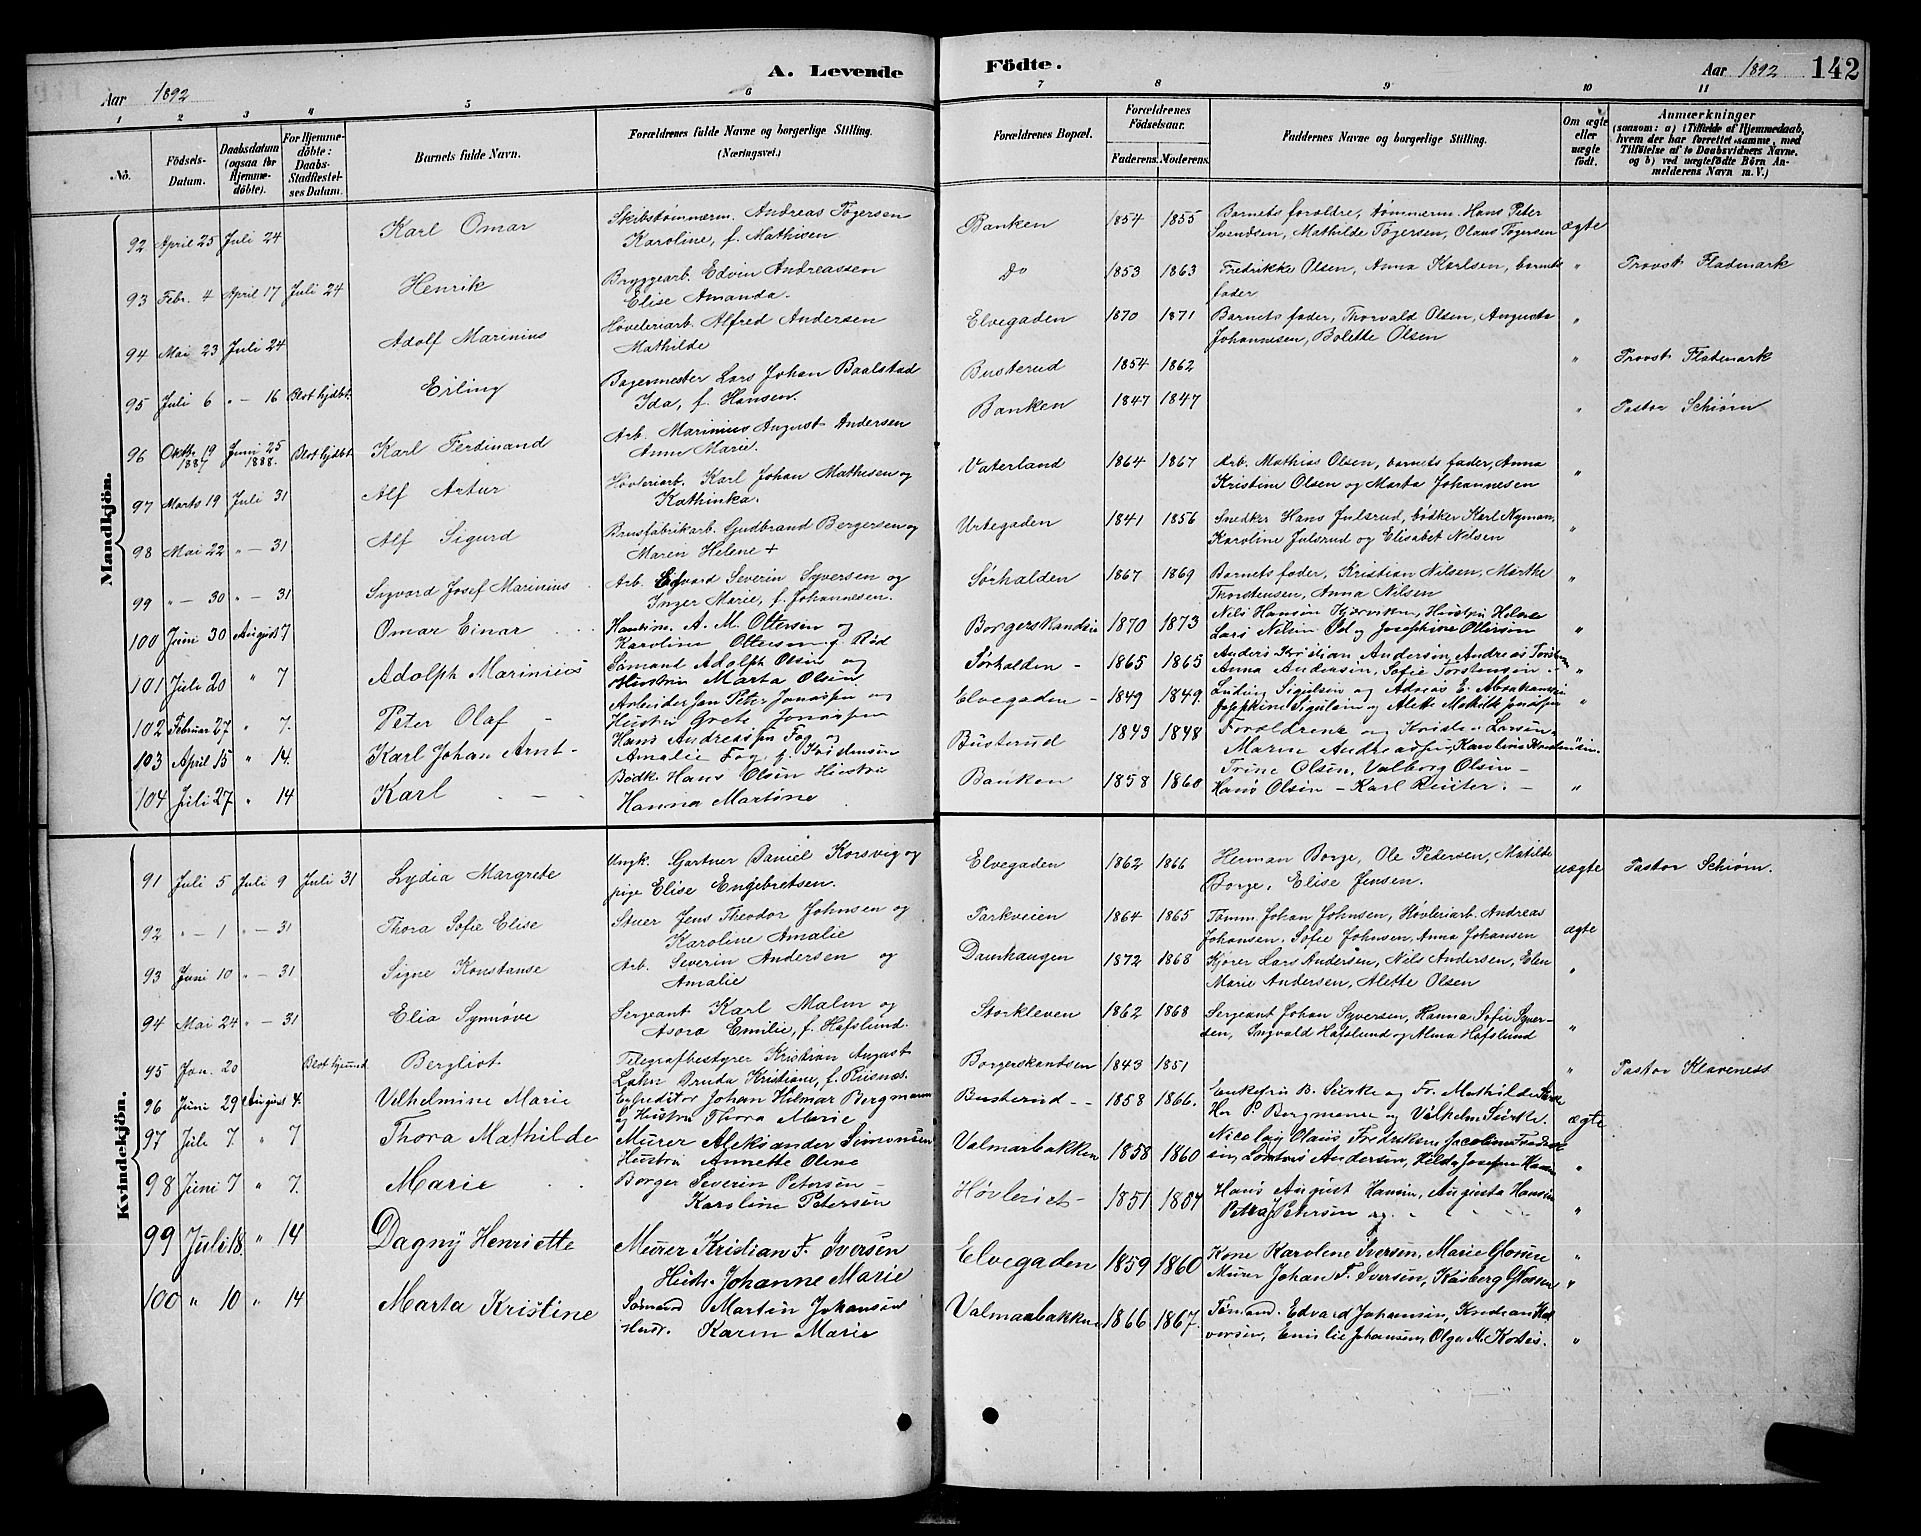 A. Levende Födte.
Aar 1892
Aar 1892 142
1 2 3 4 5 6 7 8 9 10 11
No.
Födsels-Datum.
Daabsdatum (ogsaa for Hjemmedöbte).
For Hjemmedöbte: Daabs-Stadfæstelses Datum.
Barnets fulde Navn.
Forældrenes fulde Navne og borgerlige Stilling. (Næringsvei.)
Forældrenes Bopæl.
Forældrenes Födselsaar.
Faderens. Moderens.
Faddernes Navne og borgerlige Stilling.
Om ægte eller uægte födt.
Anmærkninger
(saasom: a) i Tilfælde af Hjemmedaab, hvem der har forrettet samme, med Tilföielse af to Daabsvidners Navne. og b) ved uægtefödte Börn Anmelderens Navn m. V.)
Mandkjön.
92 April 25 Juli 24 Karl Omar Skibstømmerm. Andreas Tøgersen Banken 1854 1855 Barnets forældre, tømmerm. Hans Peter
Karoline, f. Mathisen Svendsen, Mathilde Tøgersen, Olaus Tøgersen ægte
93 Febr. 4 April 17 Juli 24 Henrik Bryggearb. Edvin Andreassen Do 1853 1863 Fredrikke Olsen, Anna Karlsen, barnets " Provst Fladmark
Elise Amanda. fader
94 Mai 23 Juli 24 Adolf Marinius Høvleriarb. Alfred Andersen Elvegaden 1870 1871 Barnets fader, Thorvald Olsen, Augusta "
Mathilde Johannesen, Bolette Olsen
95 Juli 6 " — 16 Blot hjdbt. Erling Bagermester Lars Johan Baalstad Busterud 1854 1862 " Provst Flatmark
Ida, f. Hansen.
96 Oktb. 19 1887 Juni 25 1888. Blot hjdbt. Karl Ferdinand Arb. Marinius August Andersen Banken 1847 1847 " Pastor Schiørn
Anne Marie.
97 Marts 19 Juli 31 Alf Artur Høvleriarb. Karl Johan Mathisen og Vaterland 1864 1867 Arb. Mathias Olsen, barnets fader, Anna "
Kathinka. Kristine Olsen og Marta Johannesen
98 Mai 22 " — 31 Alf Sigurd Brusfabrikarb. Gudbrand Bergersen og Urtegaden 1841 1856 Snedker Hans Julsrud, bødker Karl Nyman, "
Maren Helene + Karoline Julsrud og Elisabet Nilsen
99 " — 30 " — 31 Sigvard Josef Marinius Arb. Edvard Severin Syversen og Sørhalden 1867 1869 Barnets fader, Kristian Nilsen, Marthe "
Inger Marie, f. Johannesen. Thorstensen, Anna Nilsen
100 Juni 30 August 7 Omar Einar A. M. Ottersen og 1870 1873 Nils Hansen "
Karoline Ottersen f. Rød Lars Nilsen og Josephine Ottersen
101 Juli 20 " 7 Adolph Marinius Sømand Adolph Olsen og Sørhalden - 1865 1865 Anders Kristian Andersen, Andreas
Hustru Marta Olsen Anna Andersen, Sofie Torstensen - "
102 Februar 27 " 7. Peter Olaf - Arbeider Jan Petr Jonassen og Elvegaden - 1849 1849. Ludvig Sigulsen og
Hustru Grete Jonassen Josephine Sigulsen og Alette Mathilde Jonassen "
103 April 15 " 14. Karl Johan Arnt - Hans Andreassen Fog og Busterud 1843 1848 Forældrene og Larsen
Amalie Fog f. Kristensen Maren Andreassen, Karoline
104 Juli 27 " 14 Karl - - Bødk. Hans Olsen Hustru Banken 1858 1860 Trine Olsen, Valborg Olsen -
Hanna Martine Hans Olsen - Karl Reuter. - "
Kvindekjön.
91 Juli 5 Juli 9 Juli 31 Lydia Margrete Ungk. Gartner Daniel Korsvig og Elvegaden 1862 1866 Herman Borge, Ole Pedersen, Matilde uægte Pastor Schiørn.
pige Elise Engebretsen. Borge, Elise Jensen.
92 " — 1 " — 31 Thora Sofie Elise Stuer Jens Theodor Johnsen og Parkveien 1864 1865 Tømm. Johan Johnsen, Høvleriarb. Andreas ægte
Karoline Amalie Johansen, Sofie Johnsen, Anna Johansen
93 Juni 10 " — 31 Signe Konstanse Arb. Severin Andersen og Damhaugen 1872 1868 Kjører Lars Andersen, Nils Andersen, Elen "
Amalie Marie Andersen, Alette Olsen
94 Mai 24 " — 31 Elia Synnøve Sergeant Karl Malm og Storkleven 1862 1868 Sergeant Johan Syversen, Hanna Sofie Syver-
Asora Emilie, f. Hafslund. sen, Ingvald Hafslund og Alma Hafslund "
95 Jan. 20 Blot hjemmd Bergliot Telegrafbestyrer Kristian August Borgerskandsen 1843 1851 " Pastor Klaveness
Lahn Druda Kristiane, f. Riisnæs.
96 Juni 29 August 4. Velhelmine Marie Expeditor Johan Hilmar Bergmann Busterud - - 1858 1866. Enkefru B. Sürke og Fr. Mathilde
og Hustru Thora Marie Her P. Bergmann og Vilhelm Sürke. ægte
97 Juli 7. " 7 Thora Mathilde Murer Aleksander Simonsen Valmarbakken 1858 1860 Nicolay Olaus Fredriksen, Jacobine
Hustru Annette Oline Andersen, Hilda Josefine "
98 Juni 7 " 7. Marie Borger Severin Petersen - Høvleriet - 1851 Hans August Hansen, Augusta Hansen
Karoline Petersen Petra Petersen og "
99 Juli 18. " 14 Dagny Henriette Murer Kristian F. Iversen Elvegaden 1859 1860 Kone Karolene Iversen, Marie "
Hustr. Johanne Marie Murer Johan F. Iversen, "
100 " 10 " 14 Marta Kristine Sømand Martin Johansen Valmarbakken 1866 1867 Edvard Johansen, Kristian
Hustr. Karin Marie Emilie Johansen, Olga M. "